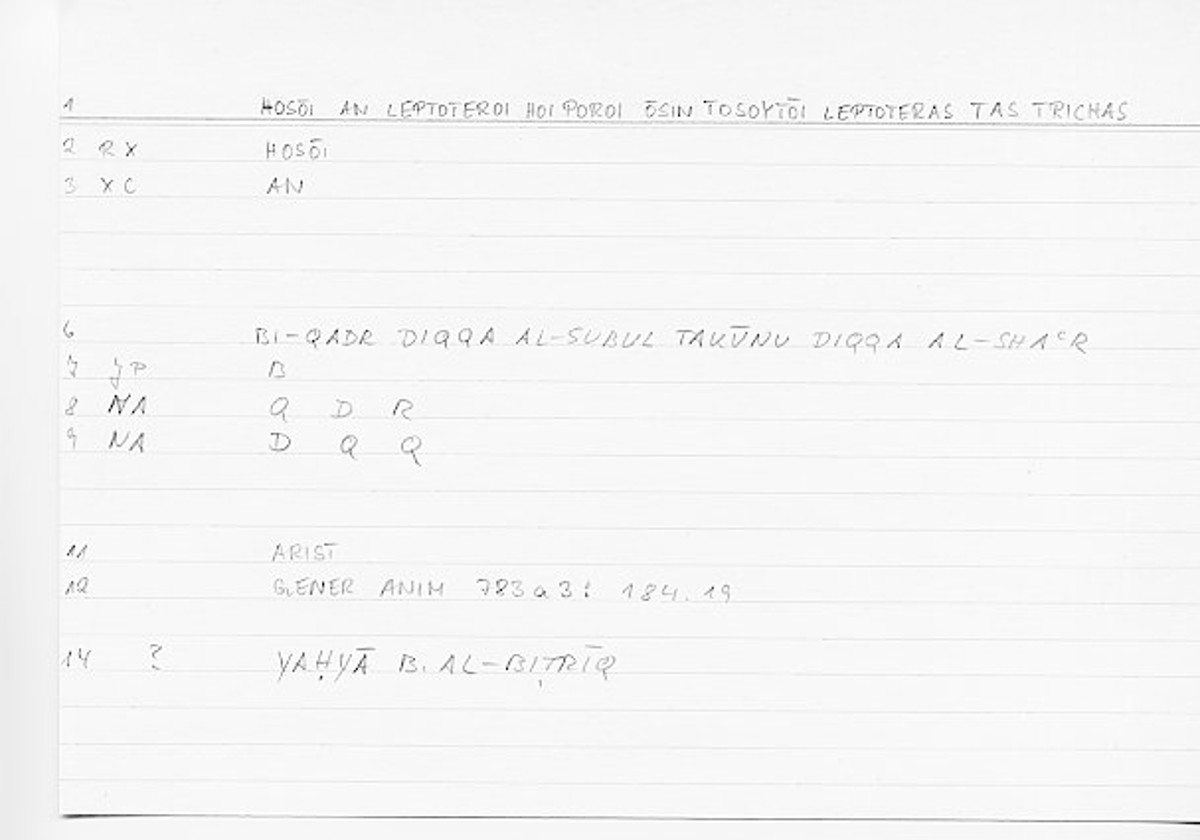 1 HOSŌI AN LEPTOTEROI HOI POROI ŌSIN TOSOYTŌI LEPTOTERAS TAS TRICHAS
2 RX HOSŌI
3 XC AN
6 BI-QADR DIQQA AL-SUBUL TAKŪNU DIQQA AL-SHAʿR
7 JP B
8 NA Q D R
9 NA D Q Q
11 ARIST
12 GENER ANIM 783a3: 184.19
14 ? YAḤYĀ B. AL-BIṬRĪQ